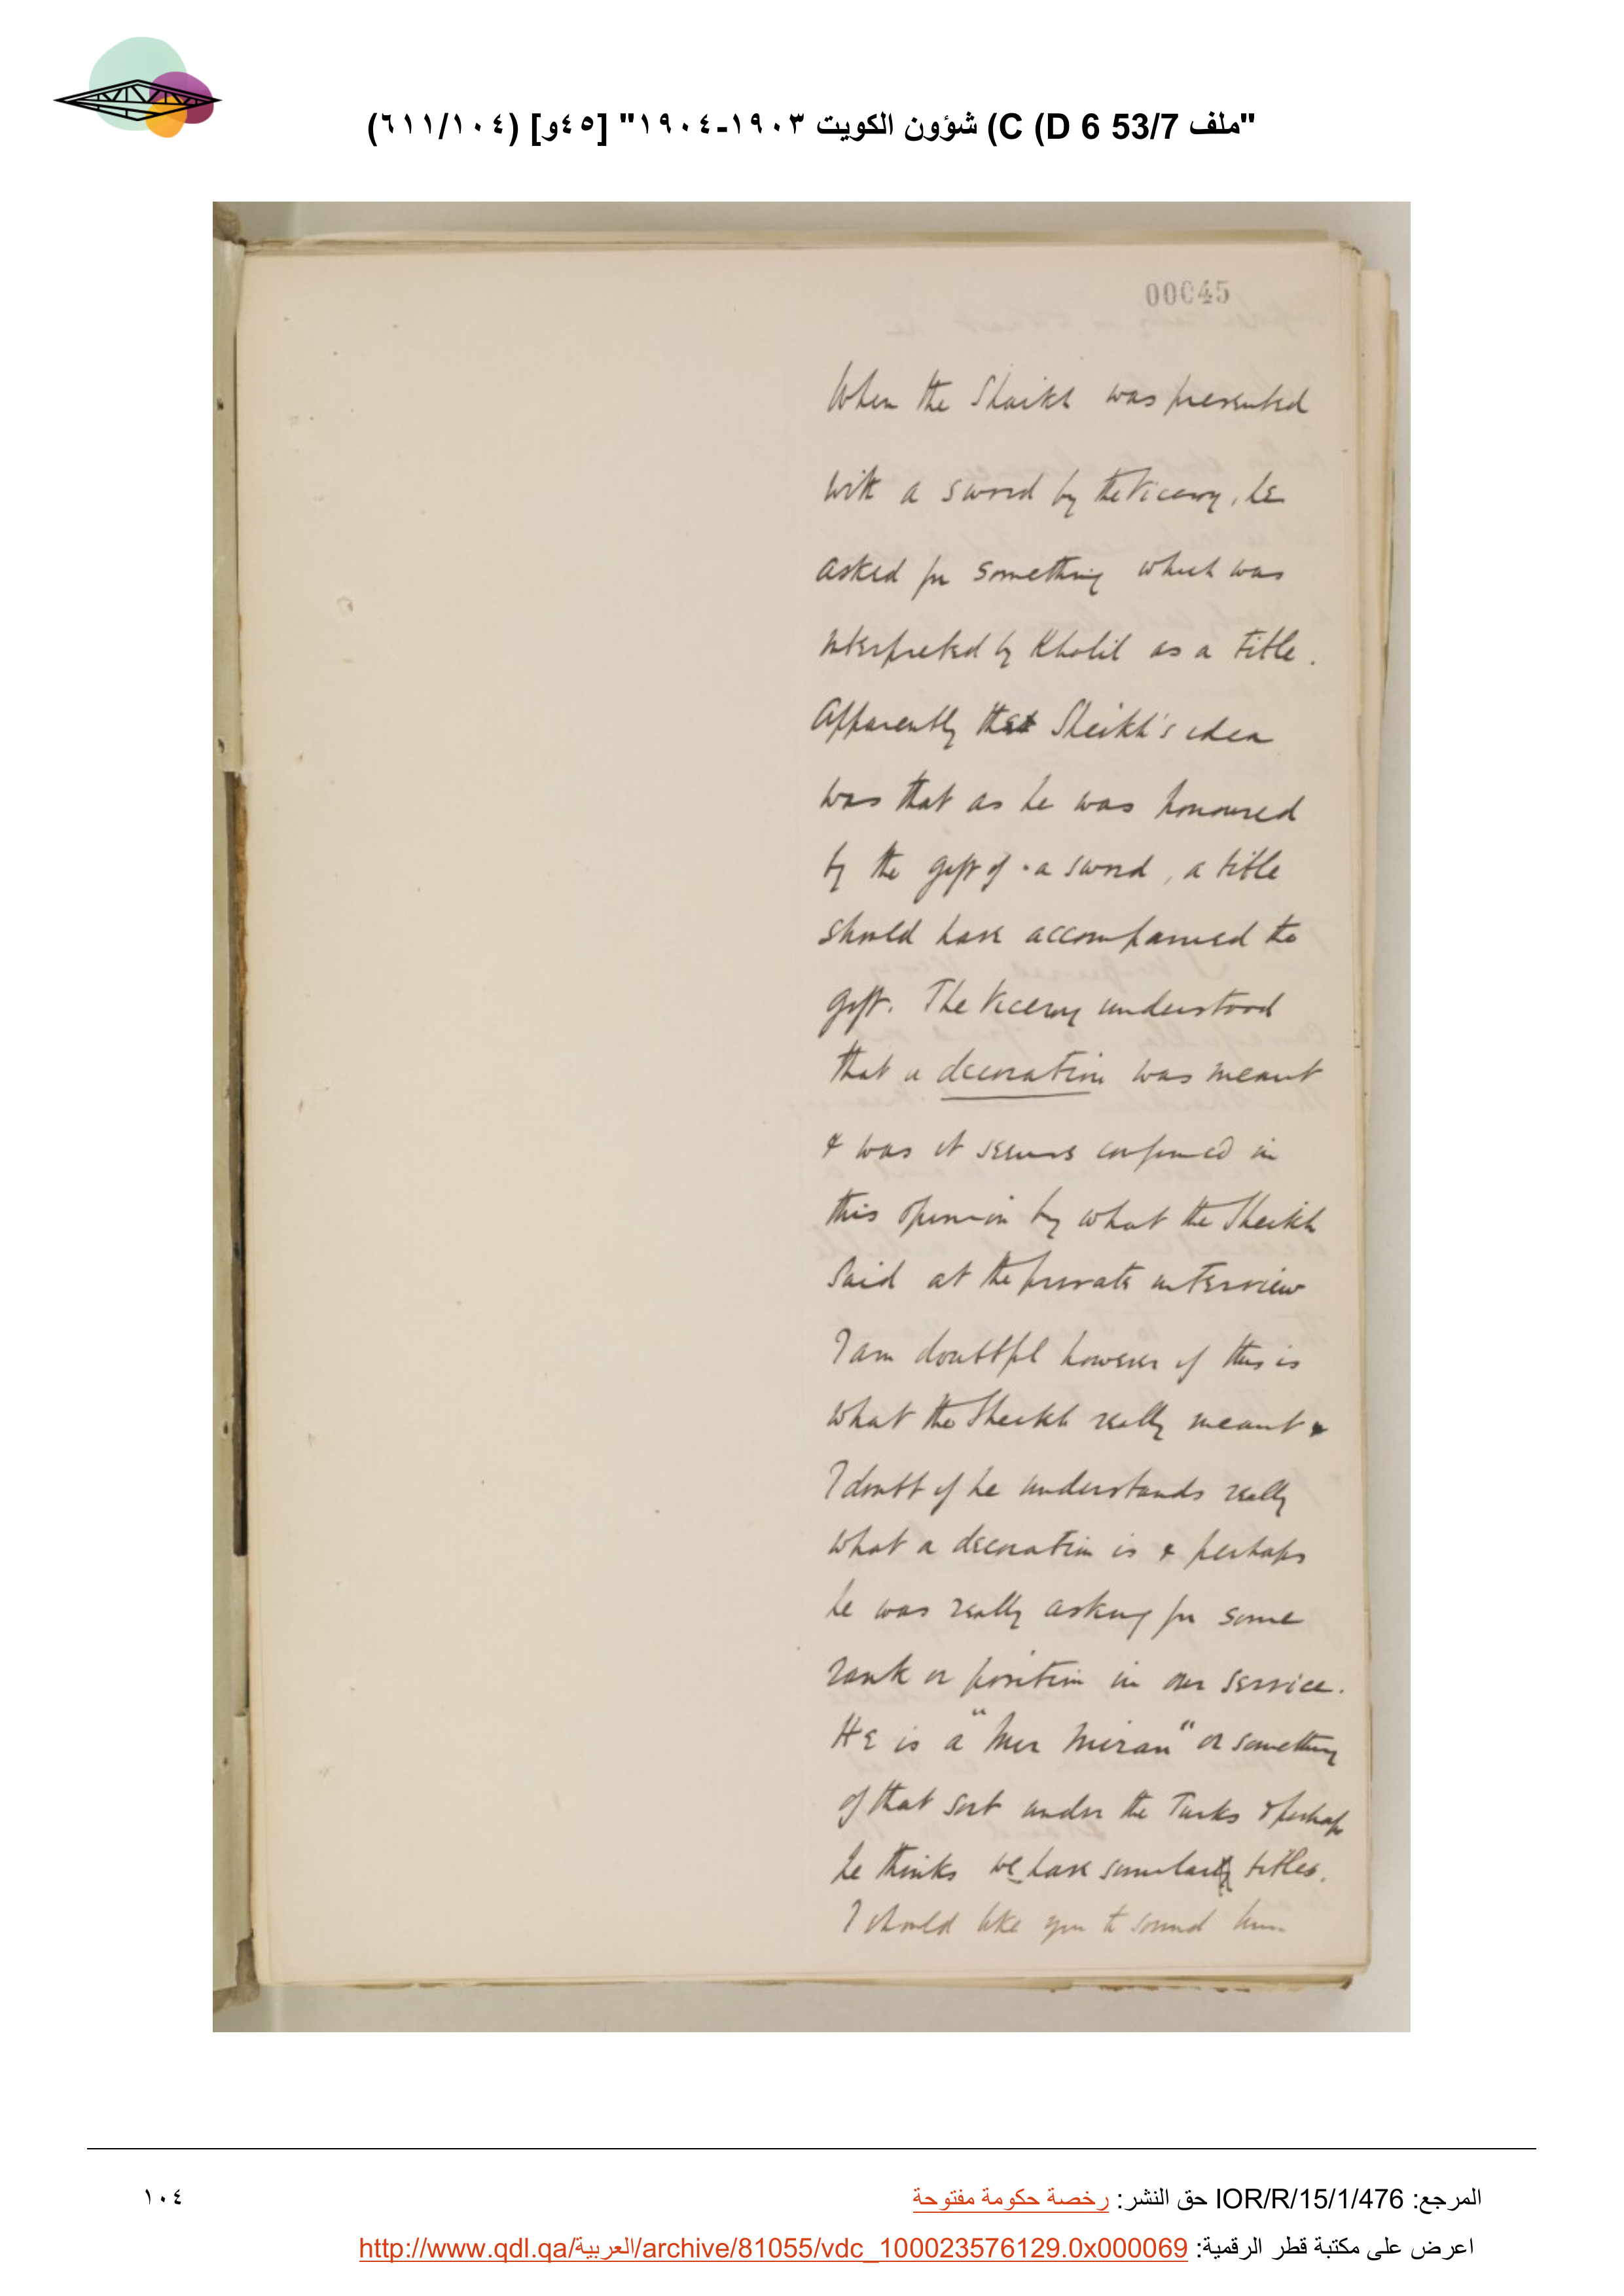 "ملف 53/7 D 6) C) شؤون الكويت ١٩٠٣-١٩٠٤" [٤٥و] (٦١١/١٠٤)
00045
When the Shaikh was presented
with a sword by the Viceroy, he
asked for something which was
interpreted by Khalil as a title.
Apparently that Sheikh's idea
was that as he was honoured
by the gift of a sword, a title
should have accompanied the
gift. The Viceroy understood
that a decoration was meant
& was it seems confirmed in
this opinion by what the Sheikh
said at the private interview
I am doubtful however if this is
what the Sheikh really meant &
I doubt if he understands really
what a decoration is & perhaps
he was really asking for some
rank or position in our service.
He is a "Mir Miran" or something
of that sort under the Turks & perhaps
he thinks we have similar titles.
I should like you to sound him
المرجع: IOR/R/15/1/476 حق النشر: رخصة حكومة مفتوحة
١٠٤
اعرض على مكتبة قطر الرقمية: http://www.qdl.qa/العربية/archive/81055/vdc_100023576129.0x000069